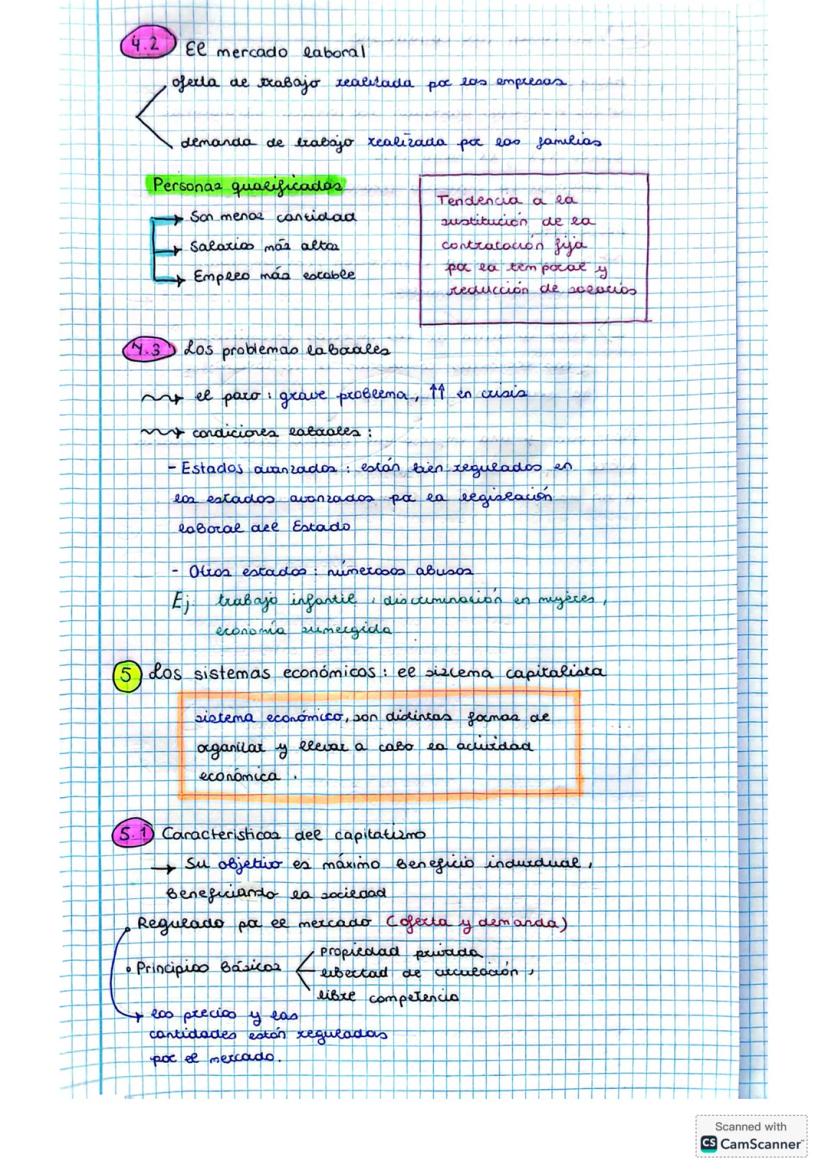 4.2 El mercado laboral
oferta de trabajo realizada por las empresas
demanda de trabajo realizada por las familias
Personas qualificadas
→ Son menor cantidad
→ Salarios más altos
→ Empleo más estable
Tendencia a la
sustitución de la
contratación fija
por la temporal y
reducción de salarios
4.3 Los problemas laborales
el paro: grave problema, ↑↑ en crisis
condiciones laborales:
- Estados avanzados: están bien regulados en
los estados avanzados por la legislación
laboral del Estado
- Otros estados: númerosos abusos
Ej. trabajo infantil, discriminación en mujeres,
economía sumergida
5 Los sistemas económicos: el sistema capitalista
sistema económico, son distintas formas de
organizar y llevar a cabo la actividad
económica.
5.1 Características del capitalismo
→ Su objetivo es máximo Beneficio individual,
Beneficiando la sociedad
• Regulado por el mercado (oferta y demanda)
• Principios Básicos
propiedad privada
libertad de circulación,
libre competencia
→ los precios y las
cantidades están reguladas
por el mercado.
Scanned with
CS CamScanner